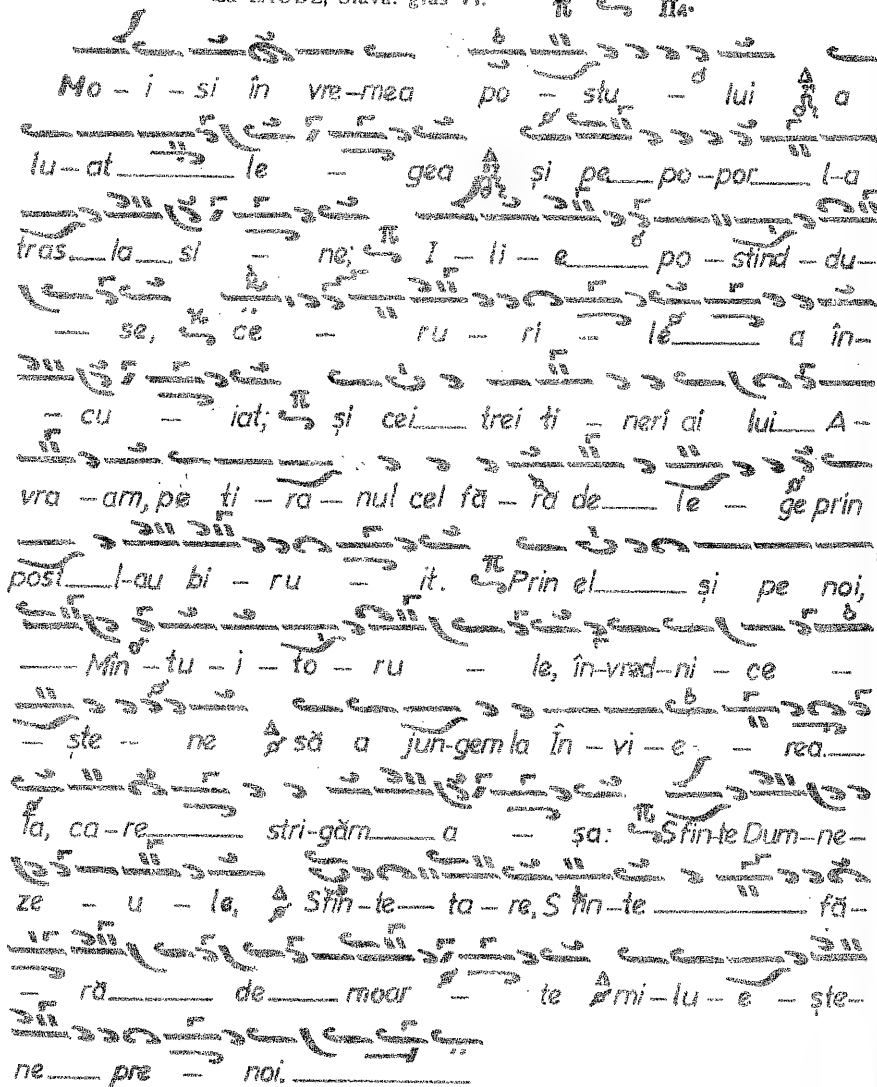 La LAUDE, Slava: glas VI.
Mo – i – si în vre–mea po – stu – lui a
lu–at le – gea și pe po–por l-a
tras la si – ne; I – li – e po – stind – du–
– se, ce – ru – ri – le a în–
– cu – iat; și cei trei ti – neri ai lui A–
vra –am, pe ti – ra – nul cel fă – ră de le – ge prin
post l-au bi – ru – it. Prin el și pe noi,
Mîn – tu – i – to – ru – le, în–vred–ni – ce –
– ște – ne să a jun–gem la În – vi – e – rea
Ta, ca–re stri–găm a – șa: Sfin–te Dum–ne–
ze – u – le, Sfin–te ta–re, S fin–te fă–
– ră de moar – te mi–lu – e – ște–
ne pre – noi.